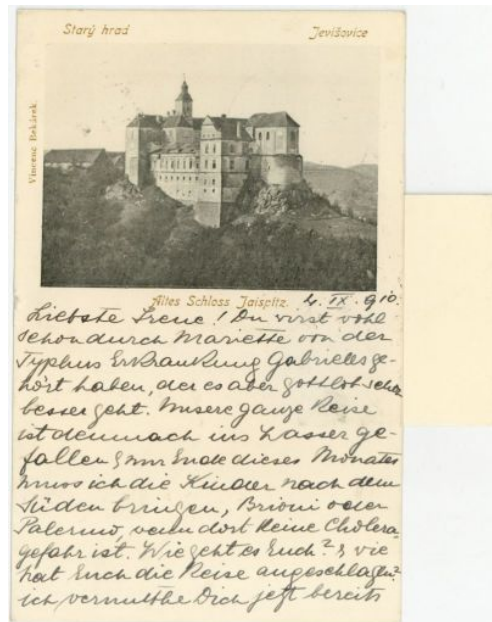 Starý hrad Jevišovice
Vincenc Bekárek.
Altes Schloss Jaispitz. 4. IX. 910.
Liebste Irene! Du wirst wohl
schon durch Mariette von der
Typhus Erkrankung Gabrielles ge-
hört haben, der es aber gottlob schon
besser geht. Unsere ganze Reise
ist demnach ins Wasser ge-
fallen & nur Ende dieses Monates
muss ich die Kinder nach dem
Süden bringen, Brioni oder
Palermo, wenn dort keine Cholera-
gefahr ist. Wie geht es Euch? & wie
hat Euch die Reise angeschlagen?
ich vermuthe Dich jetzt bereits